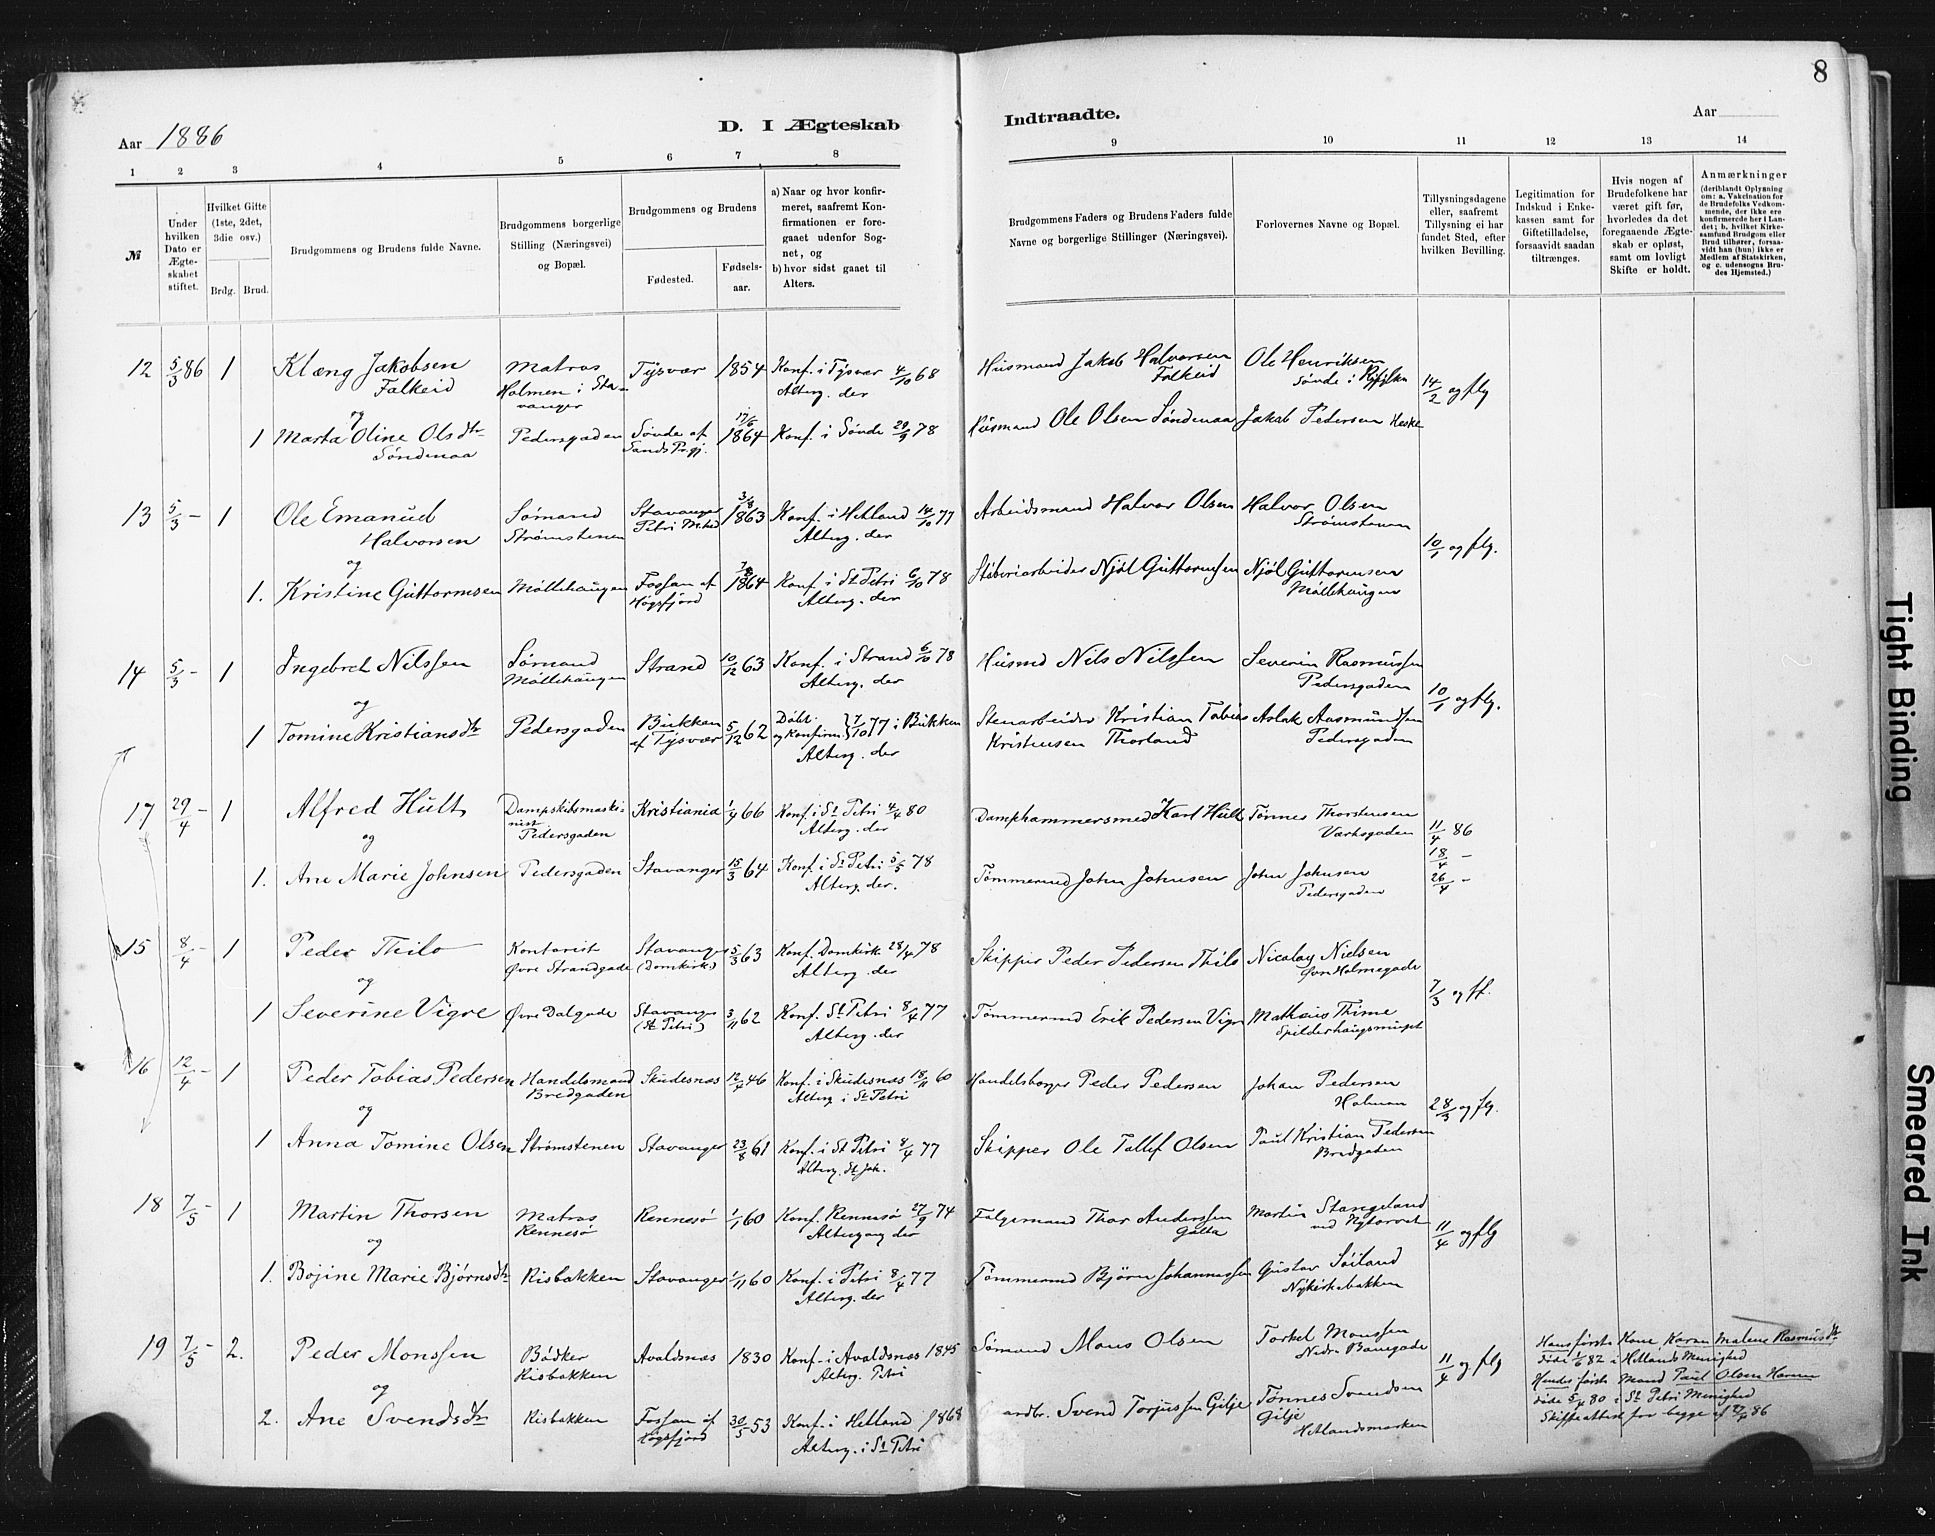 8
Aar 1886
D. I Ægteskab
Indtraadte.
Aar
1 2 3 4 5 6 7 8 9 10 11 12 13 14
№
Under hvilken Dato er Ægteskabet stiftet.
Hvilket Gifte (1ste, 2det, 3die osv.)
Brdg. Brud.
Brudgommens og Brudens fulde Navne.
Brudgommens borgerlige Stilling (Næringsvei) og Bopæl.
Brudgommens og Brudens
Fødested.
Fødselsaar.
a) Naar og hvor konfirmeret, saafremt Konfirmationen er foregaaet udenfor Sognet, og
b) hvor sidst gaaet til Alters.
Brudgommens Faders og Brudens Faders fulde Navne og borgerlige Stillinger (Næringsvei).
Forlovernes Navne og Bopæl.
Tillysningsdagene eller, saafremt Tillysning ei har fundet Sted, efter hvilken Bevilling.
Legitimation for Indskud i Enkekassen samt for Giftetilladelse, forsaavidt saadan tiltrænges.
Hvis nogen af Brudefolkene har været gift før, hvorledes da det foregaaende Ægteskab er opløst, samt om lovligt Skifte er holdt.
Anmærkninger
(deriblandt Oplysning om: a. Vakcination for de Brudefolks Vedkommende, der ikke ere konfirmerede her i Landet; b. hvilket Kirkesamfund Brudgom eller Brud tilhører, forsaavidt han (hun) ikke er Medlem af Statskirken, og c. udensogns Brudes Hjemsted.)
12 5/3 86 1 Klæng Jakobsen Falkeid Matros Holmen i Stavanger Tysvær 1854 Konf. i Tysvær 4/10 68 Alterg. der Husmand Jakob Halvorsen Falkeid Ole Henriksen Sønde i Ryfylke 14/2 og flg
og
1 Marta Oline Olsdtr Søndenaa Pedersgaden Sønde af Sands Prgj. 17/6 1864 Konf. i Sønde 29/9 78 Husmand Ole Olsen Søndenaa Jakob Pedersen Heske
13 5/3 – 1 Ole Emanuel Halvorsen Sømand Strømstenen Stavanger Petri Mehd 3/8 1863 Konf. i Hetland 14/10 77 Alterg. der Arbeidsmand Halvor Olsen Halvor Olsen Strømstenen 10/1 og flg.
og
1. Kristine Guttormsen Møllehaugen Fossan af Høgsfjord 1864 Konf. i St Petri 6/10 78 Alterg. der Støberiarbeider Njøl Guttormsen Njøl Guttormsen Møllehaugen
14 5/3 – 1 Ingebret Nilssen Sømand Møllehaugen Strand 10/12 63 Konf. i Strand 6/10 78 Alterg. der Husmd Nils Nilssen Severin Rasmussen Pedersgaden 10/1 og flg.
og
1 Tomine Kristiansdtr Pedersgaden Bukken af Tysvær 5/12 62 Døbt og Konfirm. 7/10 77 i Bukken Alterg. der Stenarbeider Kristian Tobias Kristensen Thorland Aslak Aasmundsen Pedersgaden
17 29/4 – 1 Alfred Hult Dampskibsmaskinist Pedersgaden Kristiania 1/4 66 Konf. i St Petri 4/4 80 Alterg. der Damphammersmed Karl Hult Tønnes Thorstensen Værksgaden 11/4 86 18/4 – 26/4 –
og
1. Ane Marie Johnsen Pedersgaden Stavanger 15/3 64 Konf. i St Petri 5/5 78 Alterg. der. Tømmermd John Johnsen John Johnsen Pedersgaden
15 8/4 – 1 Peder Thilo Kontorist Øvre Strandgade Stavanger (Domkirk.) 5/3 63 Konf. Domkirk 28/4 78 Alterg. der Skipper Peder Pedersen Thilo Nicolay Nielsen Øvre Holmegade 7/3 og ff.
og
1 Severine Vigre Øvre Dalgade Stavanger (St Petri) 3/11 62 Konf. St Petri 8/4 77 Alterg. der Tømmermd Erik Pedersen Vigre Mathæus Thime Spilderhaugsmuget
16 12/4 – 1 Peder Tobias Pedersen Handelsmand Bredgaden Skudesnæs 12/4 46 Konf. i Skudesnæs 18/11 60 Alterg. i St Petri Handelsborger Peder Pedersen Johan Pedersen Holmen 28/3 og flg.
og
1 Anna Tomine Olsen Strømstenen Stavanger 23/8 61 Konf. i St Petri 8/4 77 Alterg. St Joh. Skipper Ole Tollef Olsen Paul Kristian Pedersen Bredgaden
18 7/5 – 1 Martin Thorsen Matros Rennesø Rennesø 1/1 60 Konf. Rennesø 27/9 74 Altergang der Følgemand Thor Anderssen Galta Martin Stangeland ved Nytorvet 11/4 og flg
og
1. Bojine Marie Bjørnsdtr Risbakken Stavanger 1/11 60 Konf. i Petri 8/4 77 Alterg. der Tømmermd Bjørn Johannessen Gustav Søiland Nykirkebakken
19 7/5 – 2. Peder Monssen Bødker Risbakken Avaldsnæs 1830 Konf. i Avaldsnæs 1845 Alterg. Petri Sømand Mons Olsen Torkel Monssen Nedre Banegade 11/4 og flg Hans første Kone Karen Malene Rasmusdtr døde 1/6 82 i Hetlands Menighed
og
2. Ane Svendsdtr Risbakken Fossan af Høgsfjord 30/5 53 Konf. i Hetland 1868 Alterg. i St Petri Gardbr. Svend Torjussen Gilje Tønnes Svendsen Gilje Hetlandsmarken Hendes første Mand Paul Olsen døde 5/4 80 i St Petri Menighed Skifteattest for begge af 27/4 86
Tight Binding
Smeared Ink